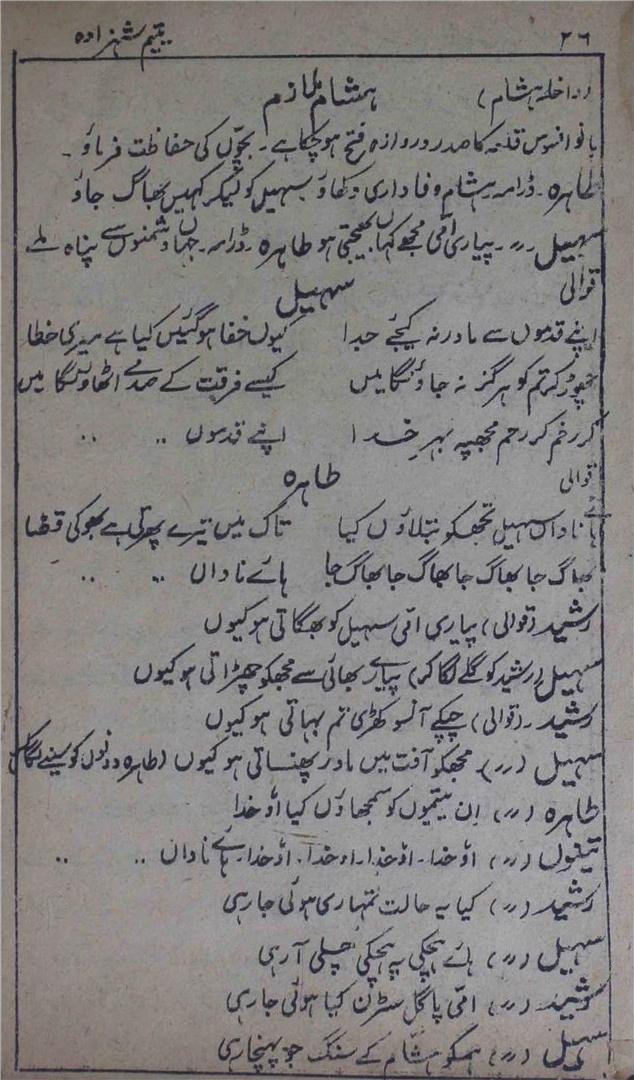 ۲۶ یتیم شہزادہ
(داخلہ ہشام) ہشام ملازم
بانو افسوس قلعہ کا صدر دروازہ فتح ہو چکا ہے۔ بچّوں کی حفاظت فرماؤ۔
طاہرہ۔ ڈرامہ ہشام وفاداری دکھاؤ سہیل کو لیکر کہیں بھاگ جاؤ
سہیل 〃۔ پیاری امّی مجھے کہاں بھیجتی ہو طاہرہ۔ ڈرامہ۔ جہاں دشمنوں سے پناہ ملے
قوالی سہیل
اپنے قدموں سے مادر نہ کیجئے جدا کیوں خفا ہو گئیں کیا ہے میری خطا
چھوڑ کر تم کو ہرگز نہ جاؤنگا میں کیسے فرقت کے صدمے اٹھاؤنگا میں
کر رحم کر رحم مجھپہ بہرِ خدا اپنے قدموں 〃 〃
قوالی طاہرہ
ہائے ناداں سہیل تجھکو بتلاؤں کیا تاک میں تیرے پھرتی ہے بھوکی قضا
بھاگ جا بھاگ جا بھاگ جا بھاگ جا ہائے ناداں 〃 〃
رشید (قوالی) پیاری امّی سہیل کو بھگاتی ہو کیوں
سہیل (رشید کو گلے لگا کر) پیارے بھائی سے مجھکو چھڑاتی ہو کیوں
رشید۔ (قوالی) چپکے آنسو کھڑی تم بہاتی ہو کیوں
سہیل (〃) مجھکو آفت میں مادر پھنساتی ہو کیوں (طاہرہ دونوں کو سینے لگا کر)
طاہرہ (〃) اِن یتیموں کو سمجھاؤں کیا اؤ خدا
تینوں (〃) اؤ خدا۔ اؤ خدا۔ اؤ خدا۔ اؤ خدا۔ ہائے ناداں 〃 〃
رشید (〃) کیا یہ حالت تمہاری ہوئی جا رہی
سہیل (〃) ہائے ہچکی پہ ہچکی چلی آ رہی
رشید (〃) امّی پاگل سڑن کیا ہوئی جا رہی
سہیل (〃) ہمکو ہشام کے سنگ جو پہنچا رہی